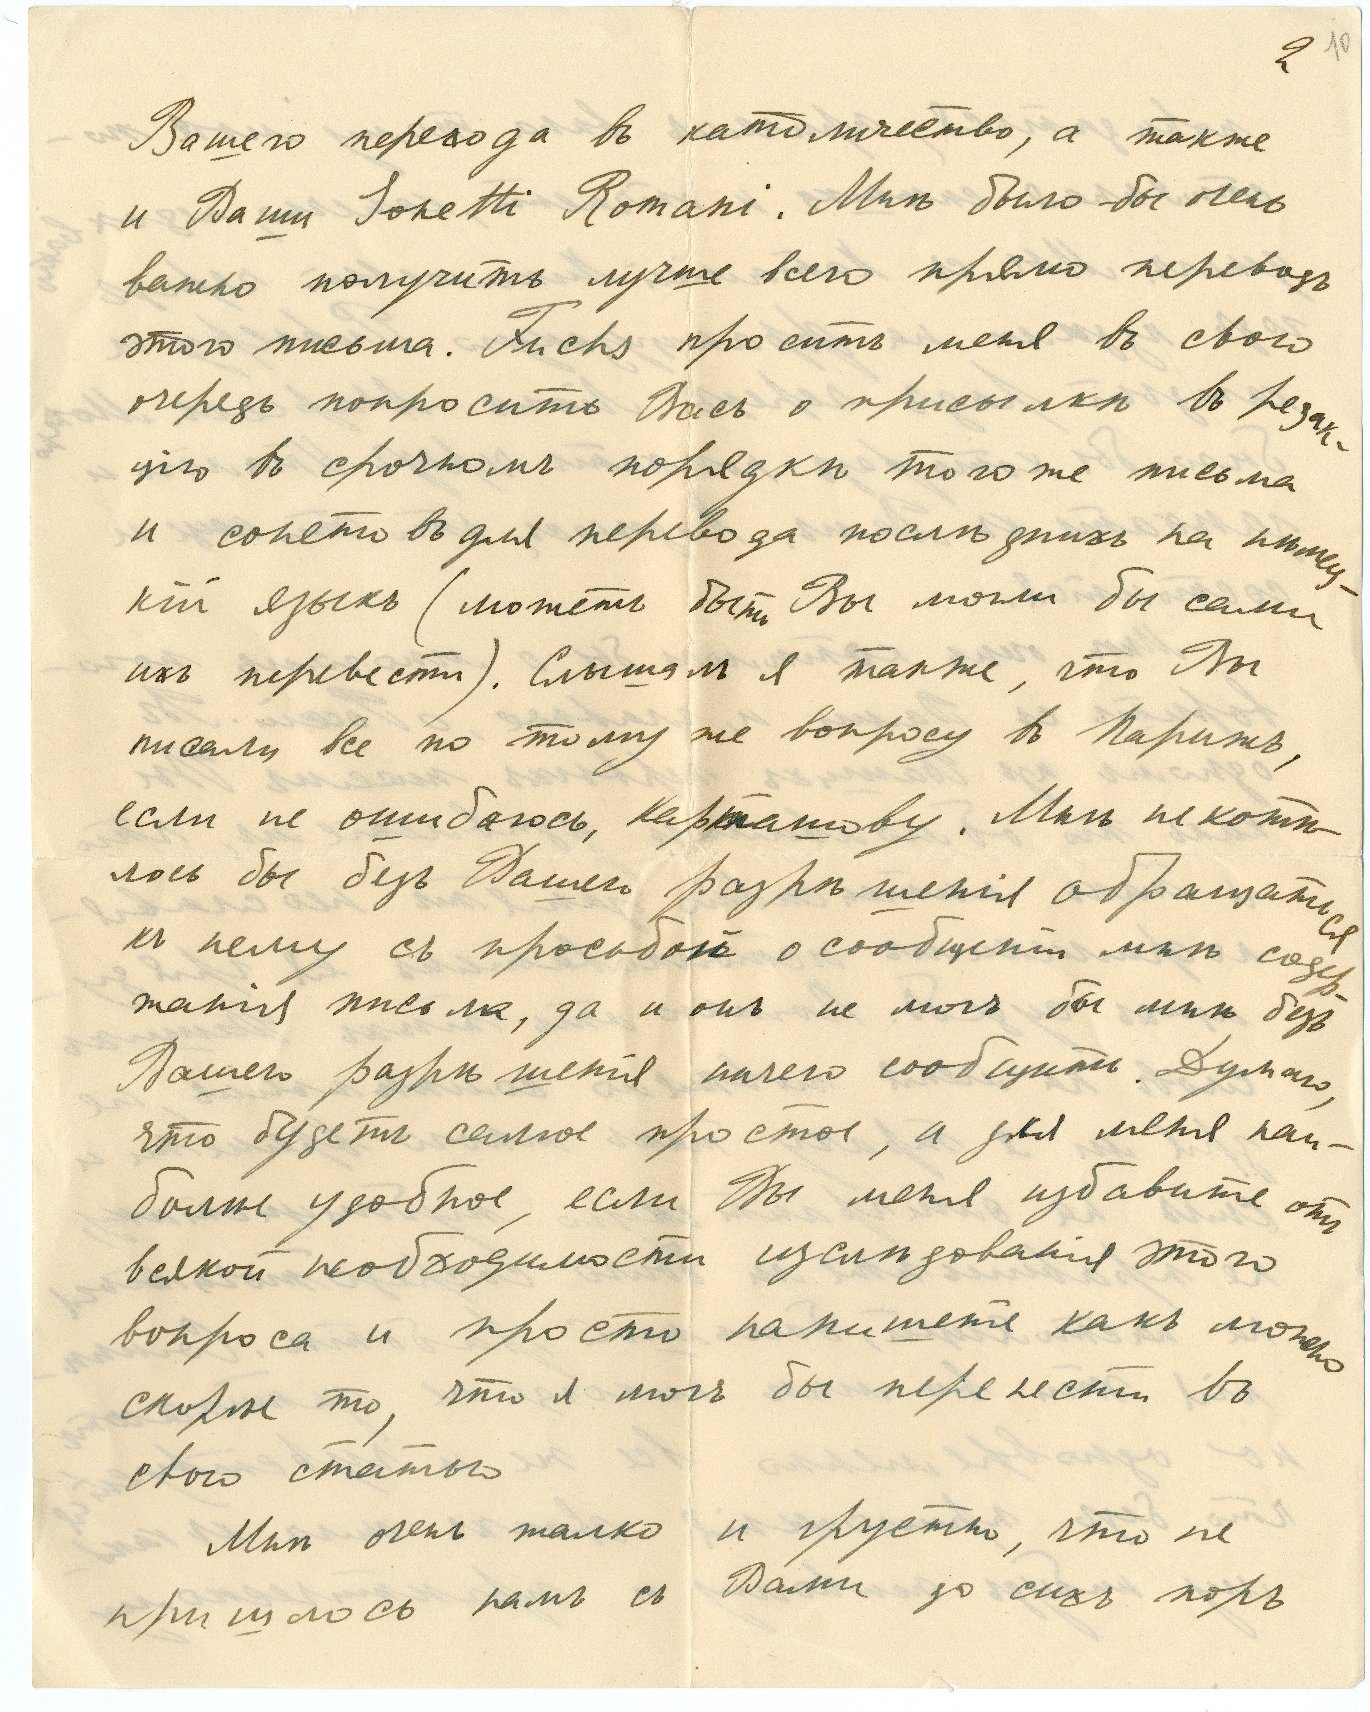 2 10
Вашего перехода въ католичество, а также
и Ваши Sonetti Romani. Мнѣ было-бы очень
важно получить лучше всего прямо переводъ
этого письма. Fuchs проситъ меня въ свою
очередь попросить Васъ о присылкѣ въ редак-
цію въ срочномъ порядкѣ того же письма
и сонетовъ для перевода послѣднихъ на нѣмец-
кій языкъ (можетъ быть Вы могли бы сами
ихъ перевести). Слышалъ я также, что Вы
писали все по тому же вопросу въ Парижъ,
если не ошибаюсь, Карташову. Мнѣ не хотѣ-
лось бы безъ Вашего разрѣшенія обращаться
къ нему съ просьбой о сообщеніи мнѣ содер-
жанія письма, да и онъ не могъ бы мнѣ безъ
Вашего разрѣшенія ничего сообщить. Думаю,
что будетъ самое простое, и для меня наи-
болѣе удобное, если Вы меня избавите отъ
всякой необходимости изслѣдованія этого
вопроса и просто напишете какъ можно
скорѣе то, что я могъ бы перенести въ
свою статью
Мнѣ очень жалко и грустно, что не
пришлось намъ съ Вами до сихъ поръ